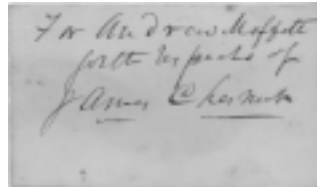 For Andrew Moffett
with respects of
James Chesnut